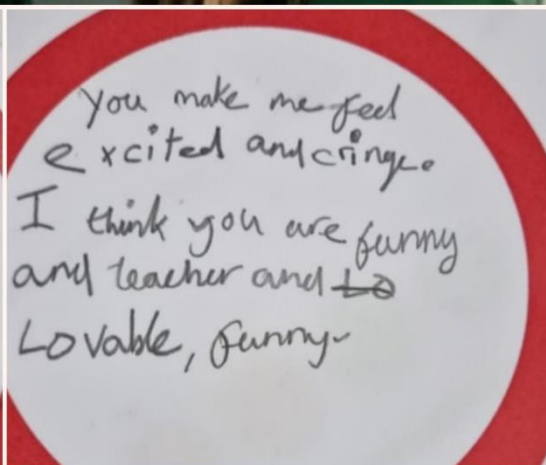 You make me feel
excited and cringe.
I think you are funny
and teacher and
Lovable, funny